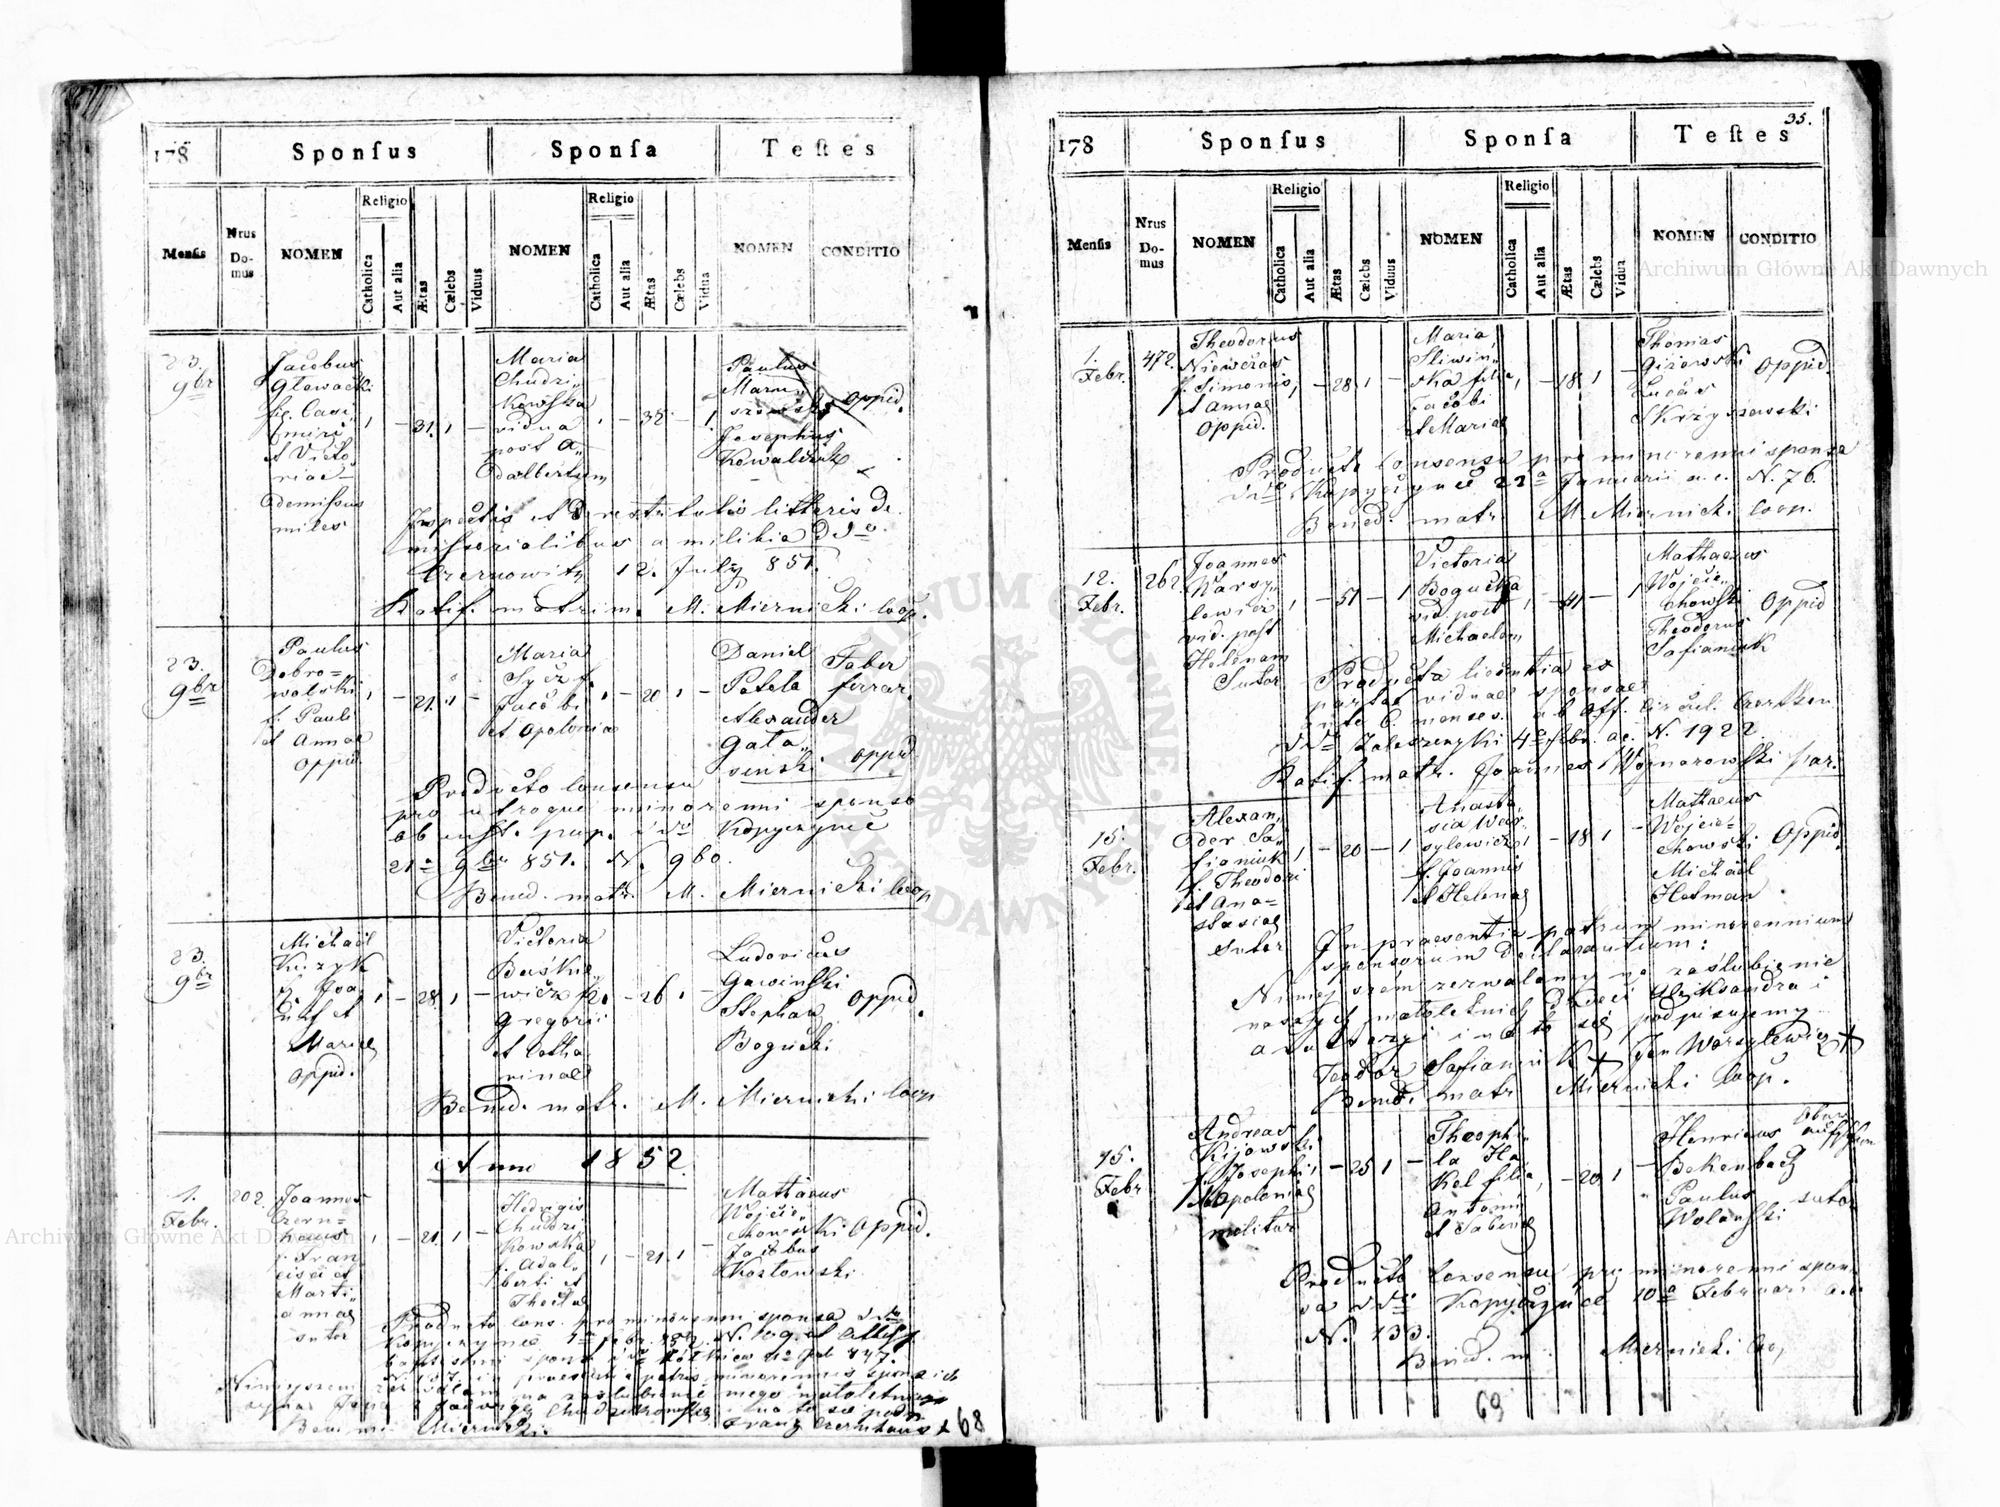 178
Sponſus
Sponſa
Teſtes
Menſis
Nrus Do-mus
NOMEN
Religio
Catholica
Aut alia
Ætas
Cælebs
Viduus
NOMEN
Religio
Catholica
Aut alia
Ætas
Cælebs
Vidua
NOMEN
CONDITIO
23.
9br
Jacobus
Głowacki
Casi„
miri
et Victo„
riae
demissus
miles
31
Maria
Chudzi„
kowska
vidua
post A„
dalbertum
35
Paulus
Josephus
Kowalczuk
oppid.
restitutis litteris de„
missorialibus a militia ddo
Czernowitz 12. July 851.
Ratif. matrim. M. Miernicki Coop.
23.
9br
Paulus
Dobro=
wolski
f. Pauli
et Annae
oppid.
21
Maria
Jacobi
et Apolonia
20
Daniel
Petela
Alexander
Gata„
sinski
Faber
ferrar.
oppid
Producto Consensu
pro utroque minorenni sponso
ab inst. pup. ddo Kopyczynce
21a 9br 851. N. 980.
Bened. matr. M. Miernicki Coop
23.
9br
Michael
f. Joa„
nis et
Mariae
oppid.
28
Victoria
Baśkie„
wicz f.
Gregorii
et Catha„
rinae
26
Ludovicus
Gawinski
Stephan
Bogucki
oppid.
Bened. matr. M. Miernicki Coop
Anno 1852.
1.
Febr.
202
Joannes
Czern=
haus
f. Fran„
cisci et
Marti„
annae
sutor
21
Hedvigis
Chudzi„
kowska
f. Adal„
berti et
Theclae
21
Mathaeus
Wojcie„
chowski
Jacobus
Kozłowski
oppid.
Producto Cons. pro minorenni sponsa ddo
Kopyczynce 1a febr. 852. N. 109. et
Niniejszem zezwalam na zaślubienie mego małoletniego
syna Jana z Jadwigą Chudzikowską i na to się podp.
Bened. m. Miernicki
Franz Czernhaus +
68
35.
178
Sponſus
Sponſa
Teſtes
Menſis
Nrus Do-mus
NOMEN
Religio
Catholica
Aut alia
Ætas
Cælebs
Viduus
NOMEN
Religio
Catholica
Aut alia
Ætas
Cælebs
Vidua
NOMEN
CONDITIO
1.
Febr.
472
Theodorus
Niewczas
f. Simonis
et Annae
oppid.
28
Maria
Sliwin„
ska filia
Jacobi
et Mariae
18
Thomas
Giżowski
Lucas
Skrzyszewski
oppid.
Producto Consensu pro minorenni sponsa
ddo Kopyczynce 22a Januarii a. c. N. 76.
Bened. matr. M. Miernicki Coop.
12.
Febr.
262
Joannes
Warsy„
lewicz
vid. post
Helenam
Sutor
51
Victoria
Bogucka
vid. post
Michaelem
41
Mathaeus
Wojcie„
chowski
Theodorus
Safianiuk
oppid
Producta licentia ex
parte viduae sponsae
ante 6 menses ab Off. Circul. Czortkow
ddo Zaleszczyki 4a febr. ac. N. 1922
Ratif. matr. Joannes Wojnarowski par.
15.
Febr.
Alexan„
der Sa„
fianiuk
f. Theodori
et Ana=
stasiae
Sutor
20
Anasta„
sia War„
sylewicz
f. Joannis
et Helenae
18
Mathaeus
Wojcie=
chowski
Michael
Hetman
oppid.
In praesentia patrum minorennium
sponsorum declarantium:
Niniejszem zezwalamy na zaślubienie
naszych małoletnich dzieci Alexandra i
Anastazyi i na to się podpisujemy
Teodor Safianiuk + Jan Warsylewicz +
Bened. matr. Miernicki Coop.
15.
Febr.
Andreas
Kijowski
f. Josephi
et Apoloniae
molitor
25
Theophi„
la Ha„
kel filia
Antonii
et Sabinae
20
Henricus
Bekenbach
Paulus
Wolanski
sutor
Producto Consensu pro minorenni spon„
sa ddo Kopyczynce 10a Februari a.c.
N. 133.
Bened. m. Miernicki Coop
69
Archiwum Główne Akt Dawnych
Archiwum Główne Akt Dawnych
ARCHIWUM GŁÓWNE AKT DAWNYCH